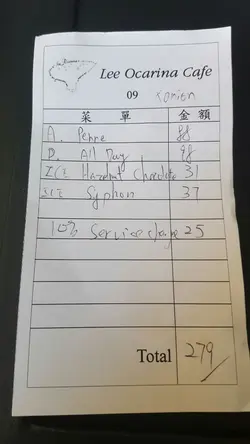 Lee Ocarina Cafe
09
菜 單 金 額
A. Penne 88
D. All Day 98
ICE Hazelnut Chocolate 31
Syphon 37
10% Service charge 25
Total 279